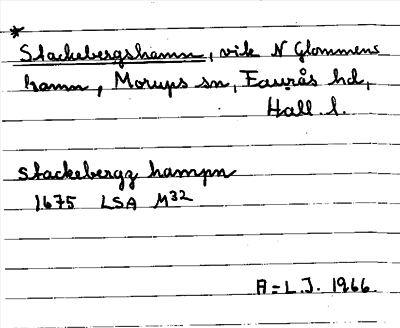 *
Stackebergshamn, vik N Glommens
hamn, Morups sn, Faurås hd,
Hall. l.
stackebergz hampn
1675 LSA M32
A=L.J. 1966.